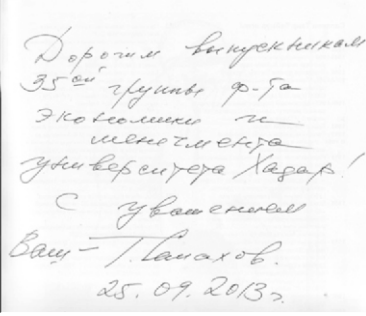 Дорогим выпускникам
35ой группы ф-та
экономики и
менечмента
университета Хазар!
С уважением
Ваш – Т. Панахов.
25.09.2013 г.